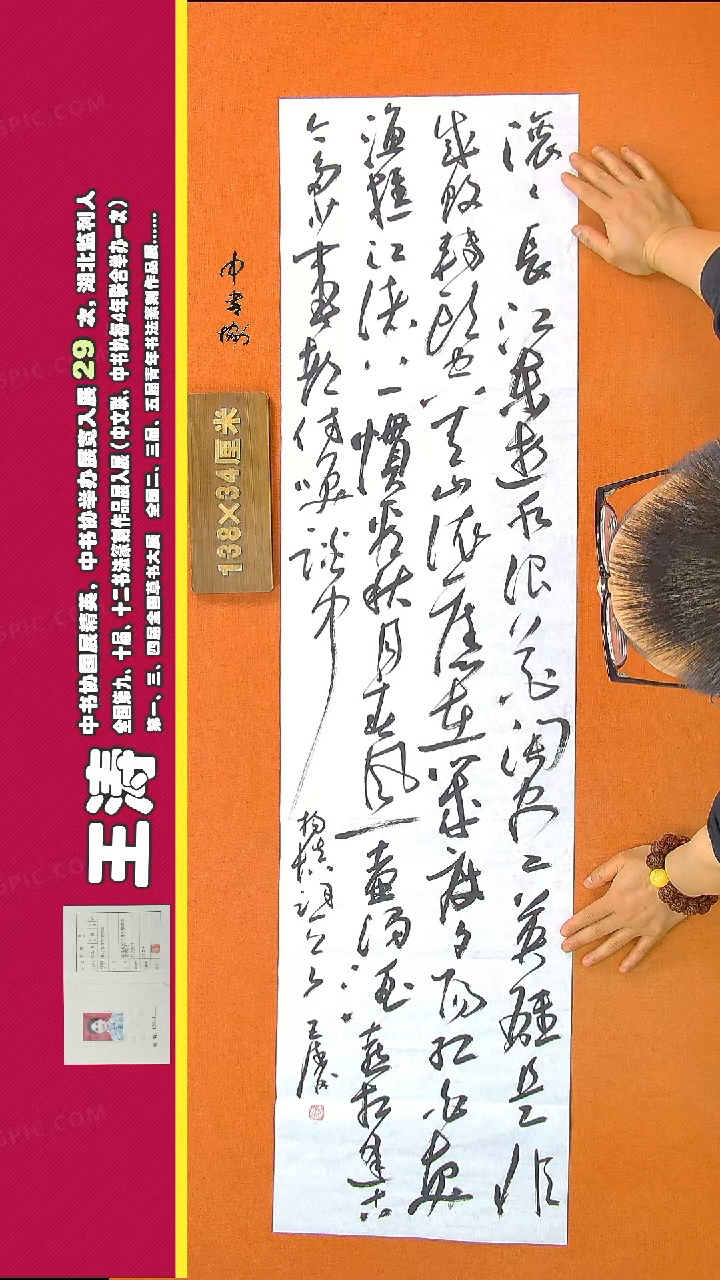 王涛
中书协国展精英，中书协举办展览入展 29 次，湖北监利人
全国第九、十届、十二书法篆刻作品展入展（中文联、中书协每4年联合举办一次）
第一、三、四届全国草书大展 全国二、三届、五届青年书法篆刻作品展......
中书协
138×34厘米
滚〻長江東逝水浪花淘盡英雄是非
成敗轉頭空青山依舊在幾度夕陽紅白髮
漁樵江渚上慣看秋月春風一壺濁酒喜相逢古
今多少事都付笑談中
楊慎詞 王濤